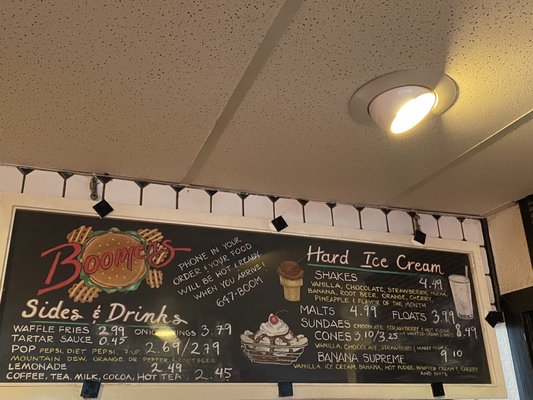 Boomers
Sides & Drinks
WAFFLE FRIES 2.99 ONION RINGS 3.79
TARTAR SAUCE 0.45
POP PEPSI, DIET PEPSI, 7 UP 2.69/2.79
MOUNTAIN DEW, ORANGE, DR. PEPPER, ROOT BEER
LEMONADE 2.49
COFFEE, TEA, MILK, COCOA, HOT TEA 2.45
PHONE IN YOUR
ORDER & YOUR FOOD
WILL BE HOT & READY
WHEN YOU ARRIVE!
647-BOOM
Hard Ice Cream
SHAKES 4.99
VANILLA, CHOCOLATE, STRAWBERRY, MOCHA,
BANANA, ROOT BEER, ORANGE, CHERRY,
PINEAPPLE & FLAVOR OF THE MONTH
MALTS 4.99 FLOATS 3.99
SUNDAES CHOCOLATE, STRAWBERRY, HOT FUDGE 8.49
CONES 3.10/3.25
VANILLA, CHOCOLATE, STRAWBERRY,
BANANA SUPREME 9.10
VANILLA ICE CREAM, BANANA, HOT FUDGE, WHIPPED CREAM & CHERRY
AND NUTS